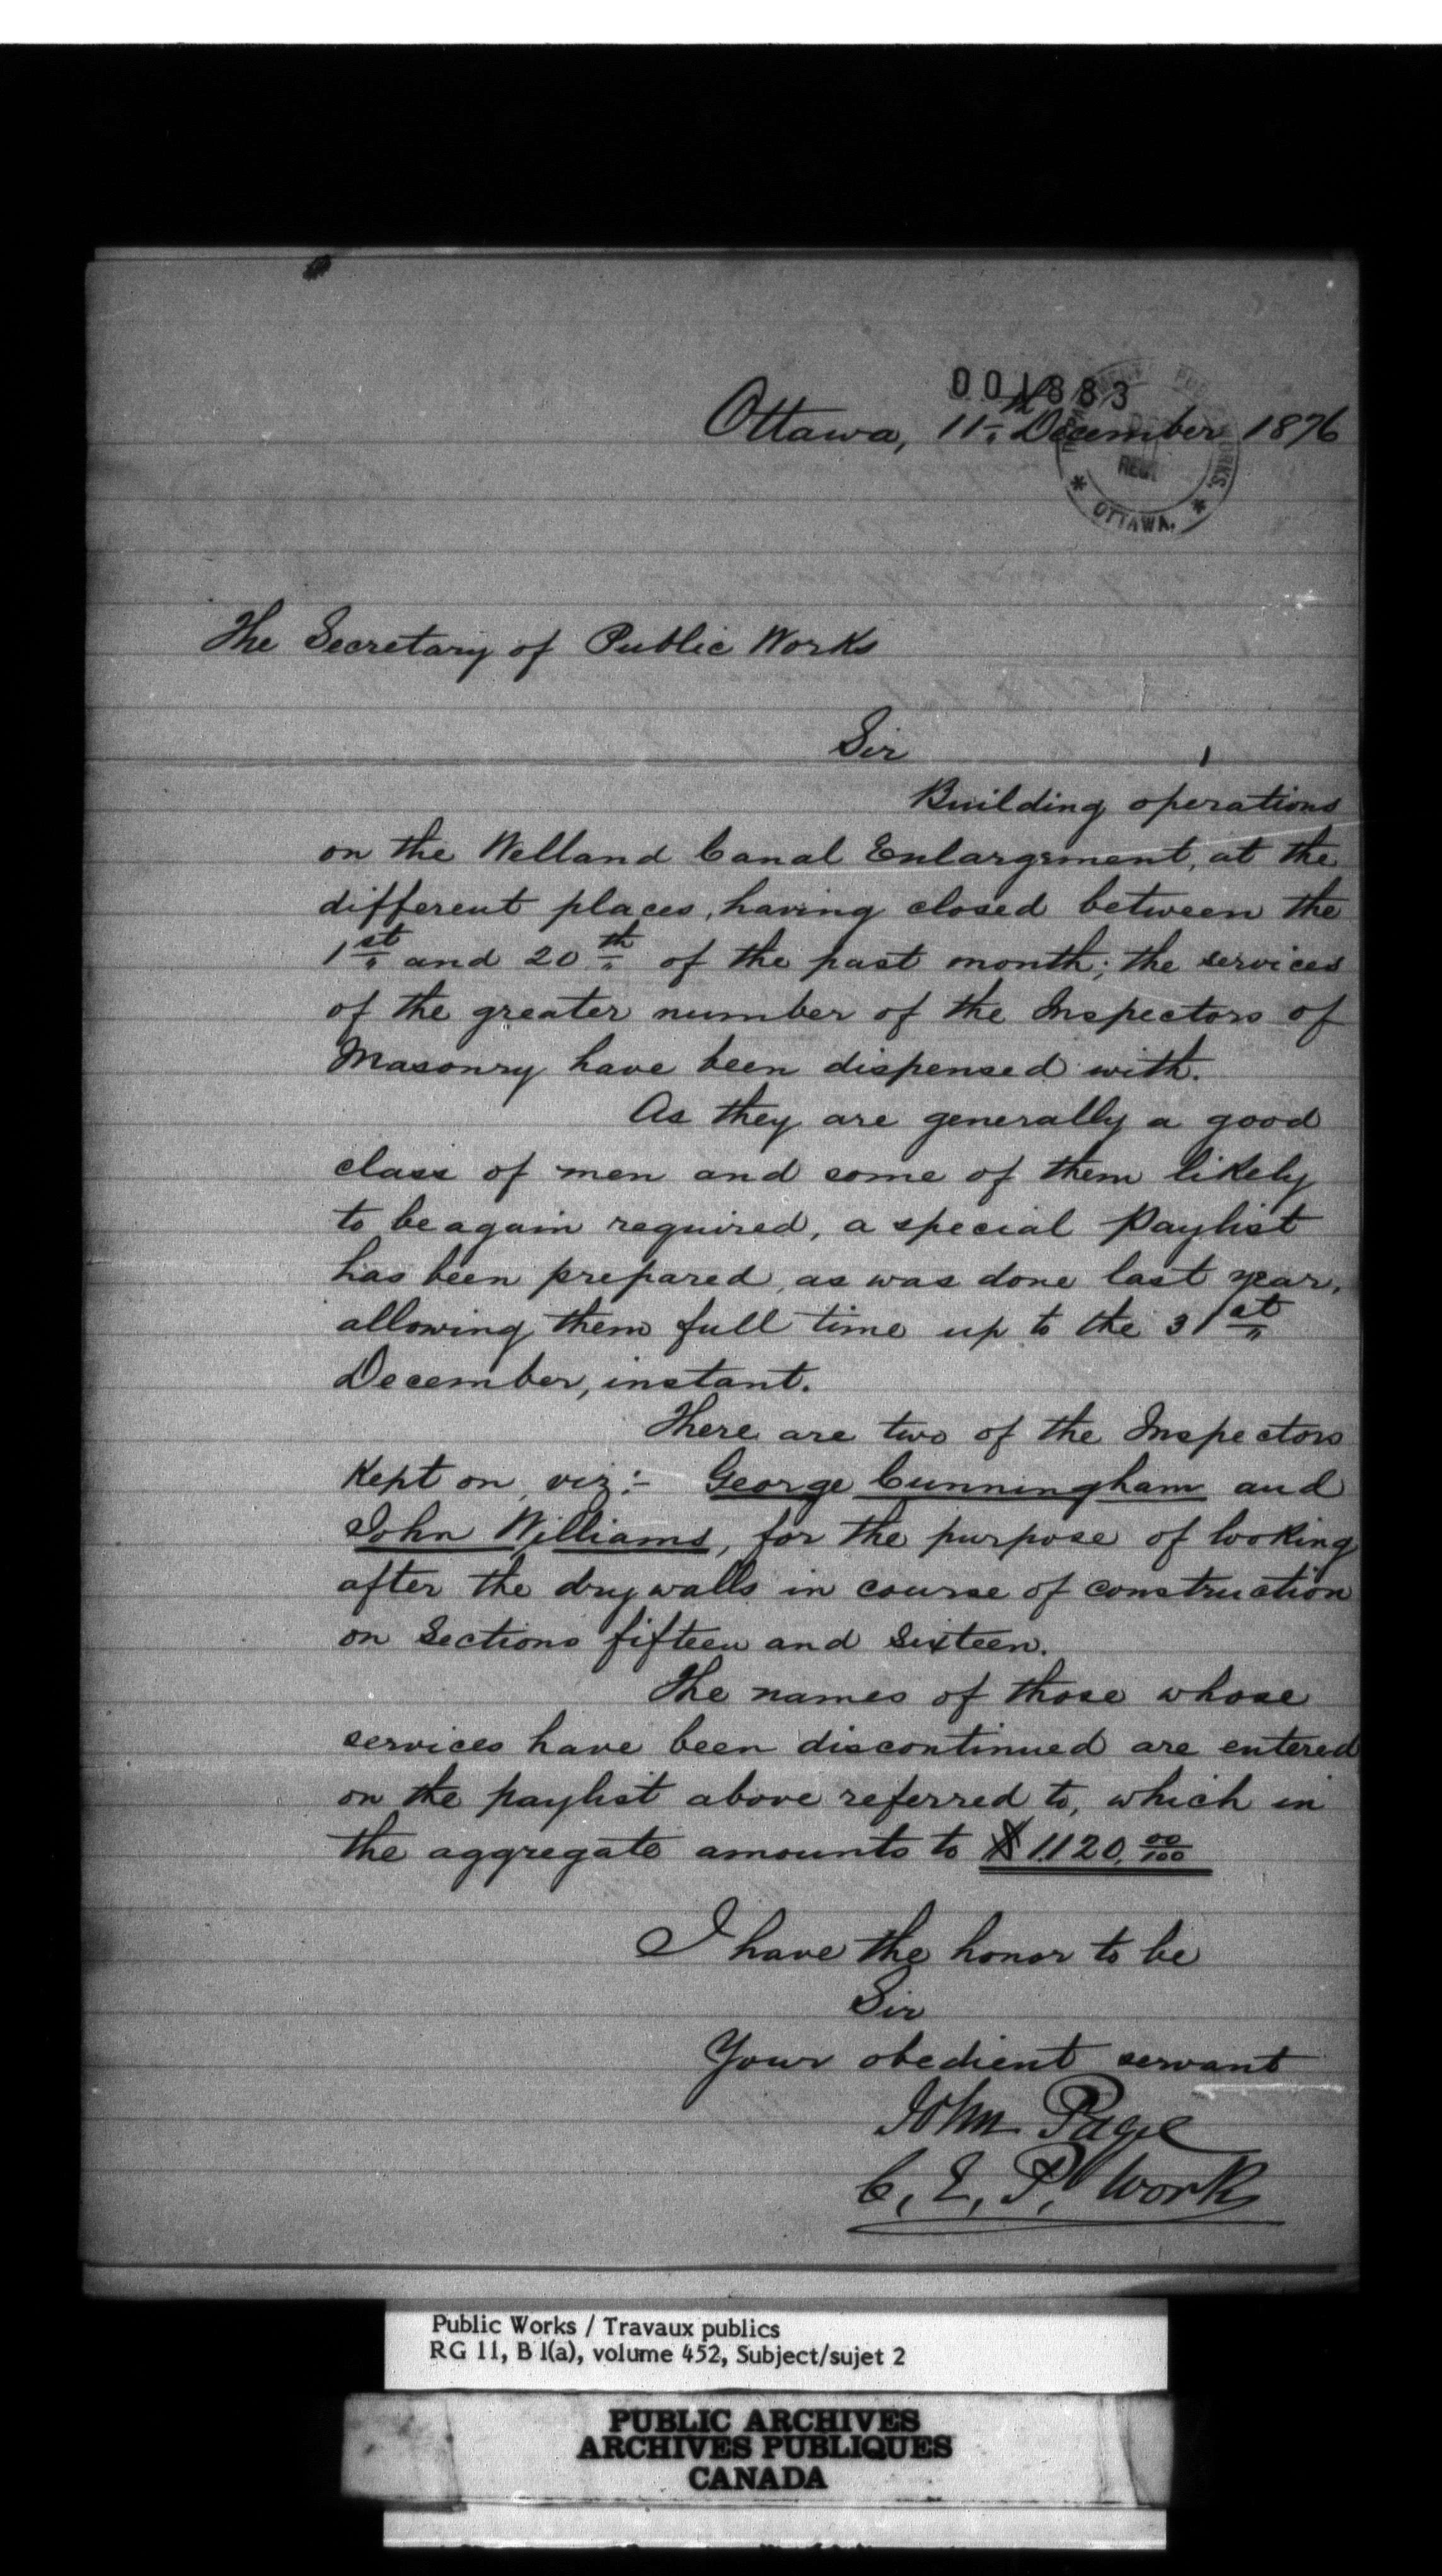 001883
Ottawa, 11th December 1876
DEPARTMENT PUBLIC WORKS. * OTTAWA. *
The Secretary of Public Works
Sir
Building operations
on the Welland Canal Enlargement, at the
different places, having closed between the
1st and 20th of the past month; the services
of the greater number of the Inspectors of
Masonry have been dispensed with.
As they are generally a good
class of men and some of them likely
to be again required, a special Paylist
has been prepared, as was done last year,
allowing them full time up to the 31st
December, instant.
There are two of the Inspectors
Kept on, viz:- George Cunningham and
John Williams, for the purpose of looking
after the dry walls in course of construction
on Sections fifteen and Sixteen.
The names of those whose
services have been discontinued are entered
on the paylist above referred to, which in
the aggregate amounts to $1120.00/100
I have the honor to be
Sir
Your obedient servant
John Page
C. E. P. Works
Public Works / Travaux publics
RG 11, B 1(a), volume 452, Subject/sujet 2
PUBLIC ARCHIVES
ARCHIVES PUBLIQUES
CANADA